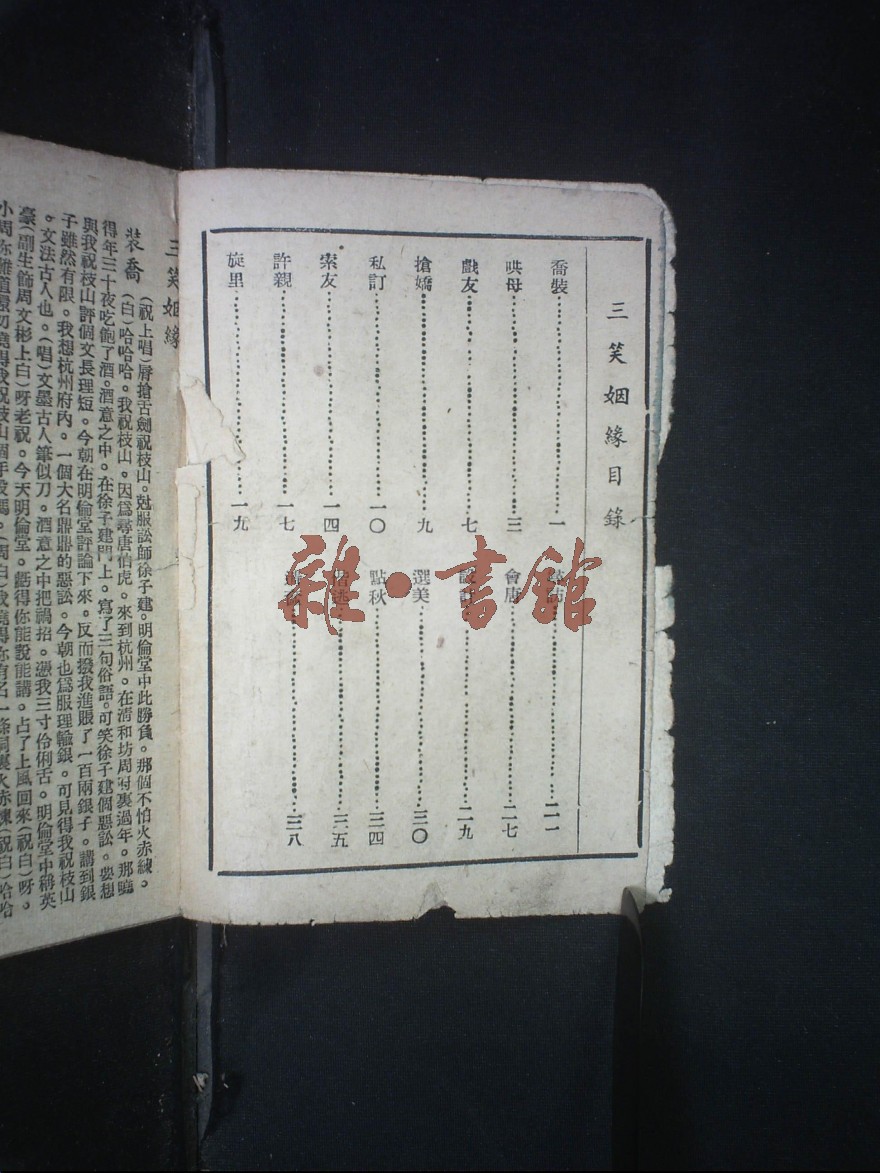 三笑姻緣目錄
喬裝 一
哄母 三
戲友 七
搶嬌 九
私訂 一〇
索友 一四
許親 一七
旋里 一九
二一
會唐 二七
二九
選美 三〇
點秋 三四
三五
三八
雜·書館
三笑姻緣
裝喬
(祝上唱)唇搶舌劍祝枝山。尅服訟師徐子建。明倫堂中此勝負。那個不怕火赤練。
(白)哈哈哈。我祝枝山。因爲尋唐伯虎。來到杭州。在清和坊周府裏過年。那曉
得年三十夜吃飽了酒。酒意之中。在徐子建門上。寫了三句俗語。可笑徐子建個惡訟。要想
與我祝枝山評個文長理短。今朝在明倫堂評論下來。反而撥我進賬了一百兩銀子。講到銀
子雖然有限。我想杭州府內。一個大名鼎鼎的惡訟。今朝也爲服理輸銀。可見得我祝枝山
。文法古人也。(唱)文墨古人筆似刀。酒意之中把禍招。憑我三寸伶俐舌。明倫堂中稱英
豪(副生飾周文彬上白)呀老祝。今天明倫堂。虧得你能說能講。占了上風回來(祝白)呀。